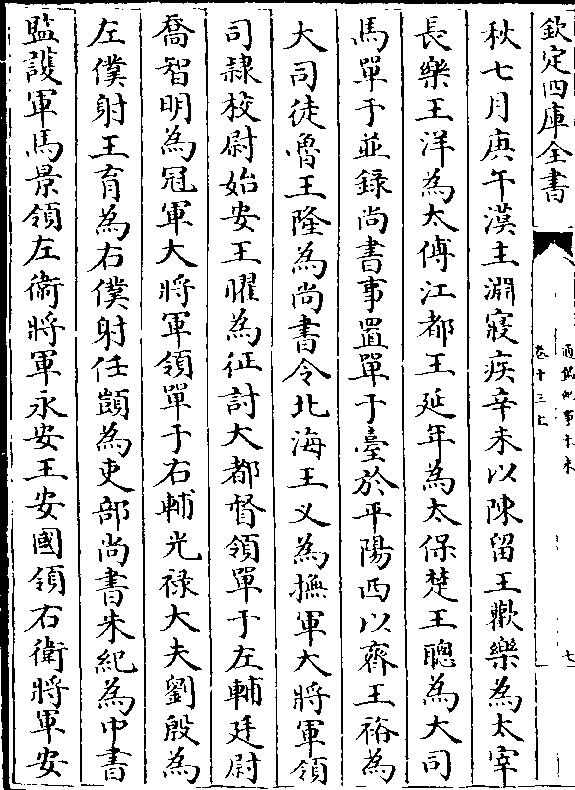 欽定四庫全書
通鑑紀事本末
卷十三上
七
秋七月庚午漢主淵寢疾辛未以陳留王歡樂為太宰
長樂王洋為太傅江都王延年為太保楚王聰為大司
馬單于並錄尚書事置單于臺於平陽西以齊王裕為
大司徒魯王隆為尚書令北海王乂為撫軍大將軍領
司隷校尉始安王曜為征討大都督領單于左輔廷尉
喬智明為冠軍大將軍領單于右輔光祿大夫劉殷為
左僕射王育為右僕射任顗為吏部尚書朱紀為中書
監護軍馬景領左衞將軍永安王安國領右衞將軍安